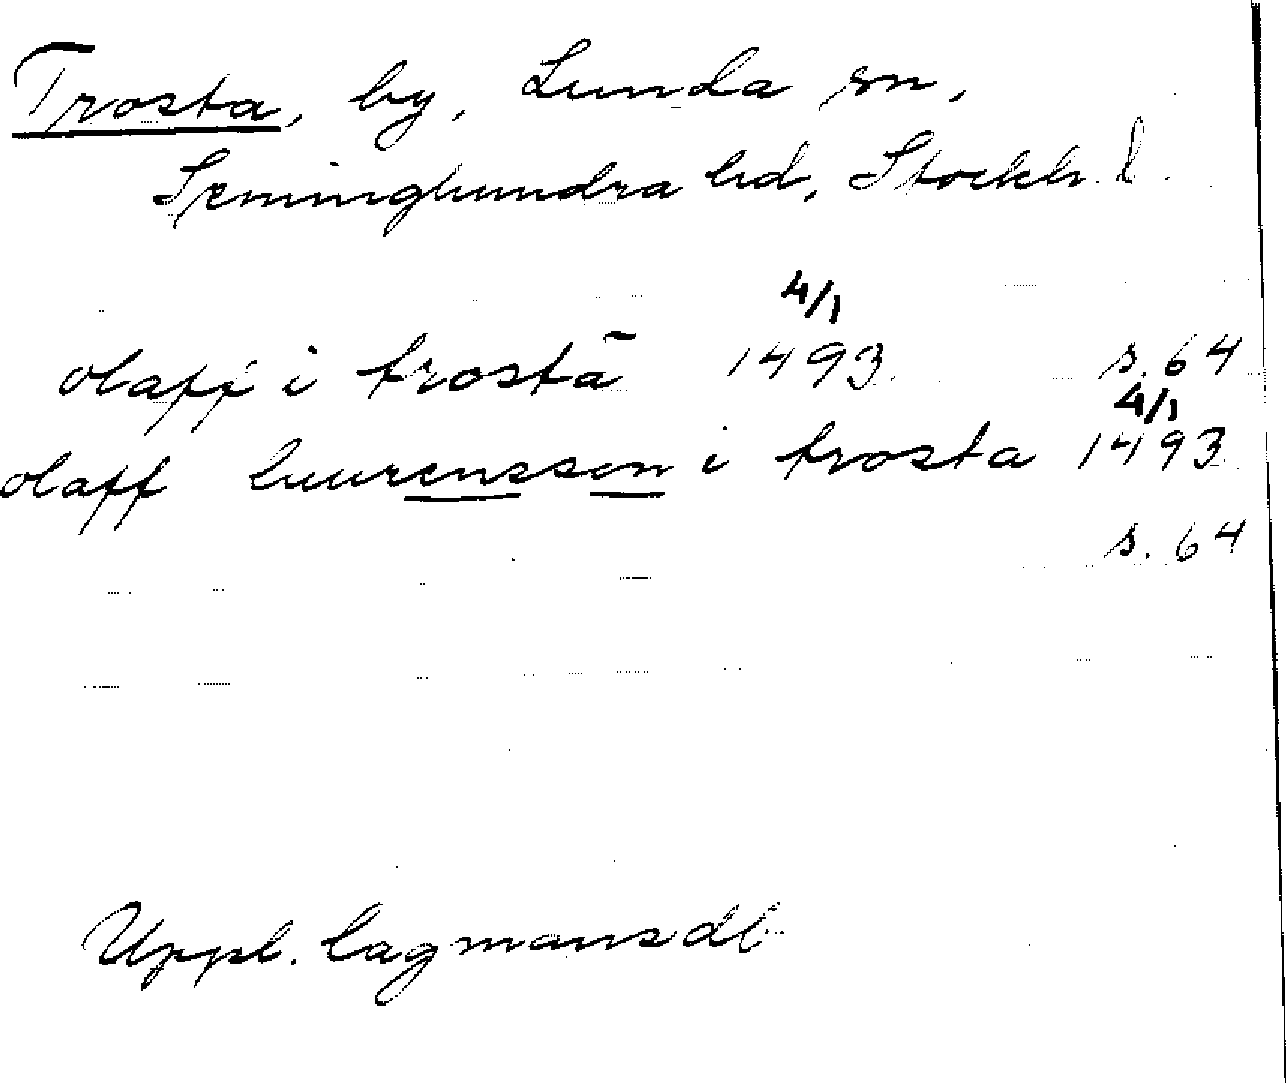 Trosta, by, Lunda sn,
Seminghundra hd, Stockh. l.
4/1
olaff i trostā 1493 s. 64
4/1
olaff laurensson i trosta 1493
s. 64
Uppl. lagmansdb